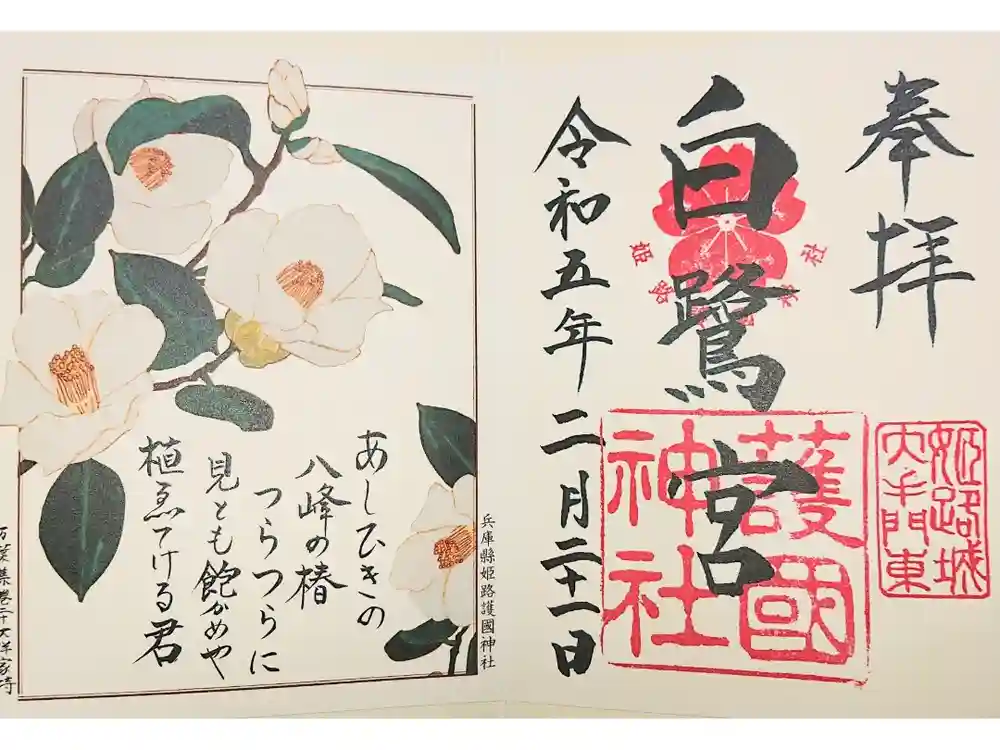 奉拝
姫路城
大手門東
白鷺宮
護國
神社
令和五年二月二十一日
兵庫縣姫路護國神社
あしひきの
八峰の椿
つらつらに
見とも飽かめや
植ゑてける君
万葉集巻二十大伴家持